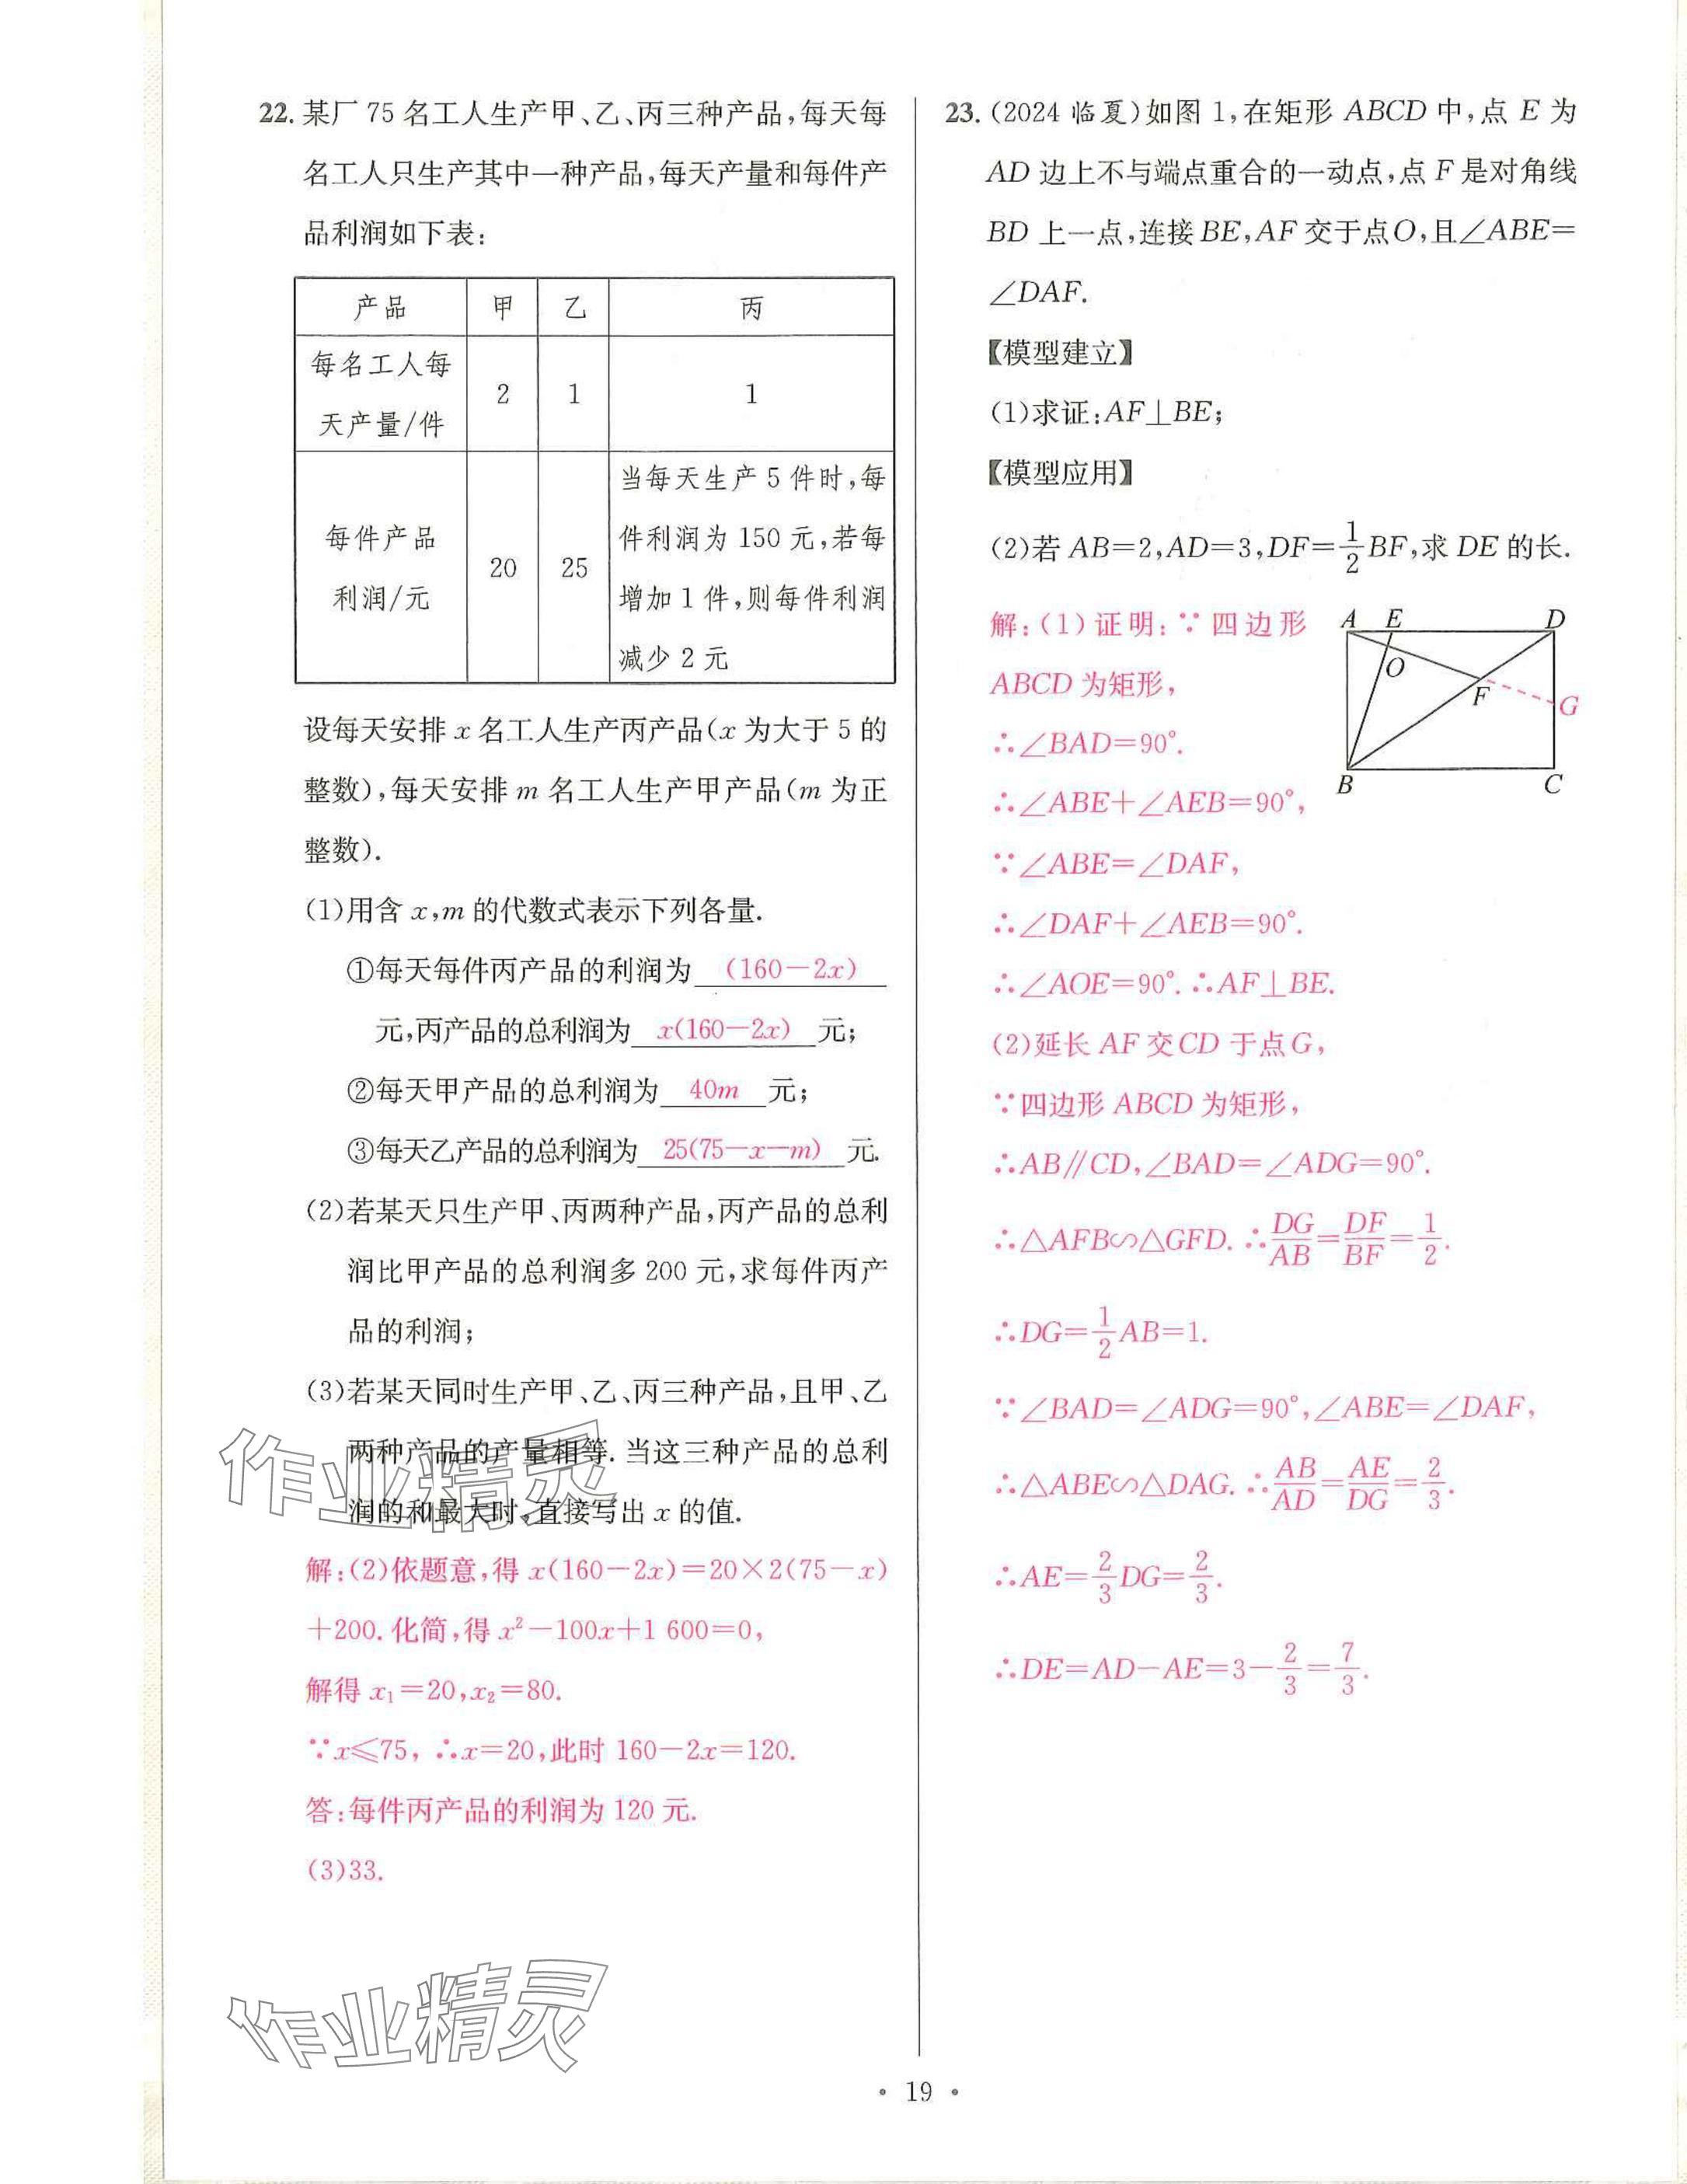 22. 某厂 75 名工人生产甲、乙、丙三种产品,每天每
名工人只生产其中一种产品,每天产量和每件产
品利润如下表:
产品 甲 乙 丙
每名工人每
天产量/件 2 1 1
每件产品
利润/元 20 25
当每天生产 5 件时,每
件利润为 150 元,若每
增加 1 件,则每件利润
减少 2 元
设每天安排 x 名工人生产丙产品(x 为大于 5 的
整数),每天安排 m 名工人生产甲产品(m 为正
整数).
(1)用含 x,m 的代数式表示下列各量.
①每天每件丙产品的利润为 (160-2x)
元,丙产品的总利润为 x(160-2x) 元;
②每天甲产品的总利润为 40m 元;
③每天乙产品的总利润为 25(75-x-m) 元.
(2)若某天只生产甲、丙两种产品,丙产品的总利
润比甲产品的总利润多 200 元,求每件丙产
品的利润;
(3)若某天同时生产甲、乙、丙三种产品,且甲、乙
两种产品的产量相等.当这三种产品的总利
润的和最大时,直接写出 x 的值.
解:(2)依题意,得 x(160-2x)=20×2(75-x)
+200. 化简,得 x²-100x+1 600=0,
解得 x₁=20,x₂=80.
∵x≤75, ∴x=20,此时 160-2x=120.
答:每件丙产品的利润为 120 元.
(3)33.
作业精灵
作业精灵
23. (2024 临夏)如图 1,在矩形 ABCD 中,点 E 为
AD 边上不与端点重合的一动点,点 F 是对角线
BD 上一点,连接 BE,AF 交于点O,且∠ABE=
∠DAF.
【模型建立】
(1)求证:AF⊥BE;
【模型应用】
(2)若 AB=2,AD=3,DF=1/2 BF,求 DE 的长.
A E D
O
F
G
B C
解:(1)证明:∵四边形
ABCD 为矩形,
∴∠BAD=90°.
∴∠ABE+∠AEB=90°,
∵∠ABE=∠DAF,
∴∠DAF+∠AEB=90°.
∴∠AOE=90°. ∴AF⊥BE.
(2)延长 AF 交 CD 于点G,
∵四边形 ABCD 为矩形,
∴AB∥CD,∠BAD=∠ADG=90°.
∴△AFB∽△GFD. ∴DG/AB=DF/BF=1/2.
∴DG=1/2 AB=1.
∵∠BAD=∠ADG=90°,∠ABE=∠DAF,
∴△ABE∽△DAG. ∴AB/AD=AE/DG=2/3.
∴AE=2/3 DG=2/3.
∴DE=AD-AE=3-2/3=7/3.
• 19 •